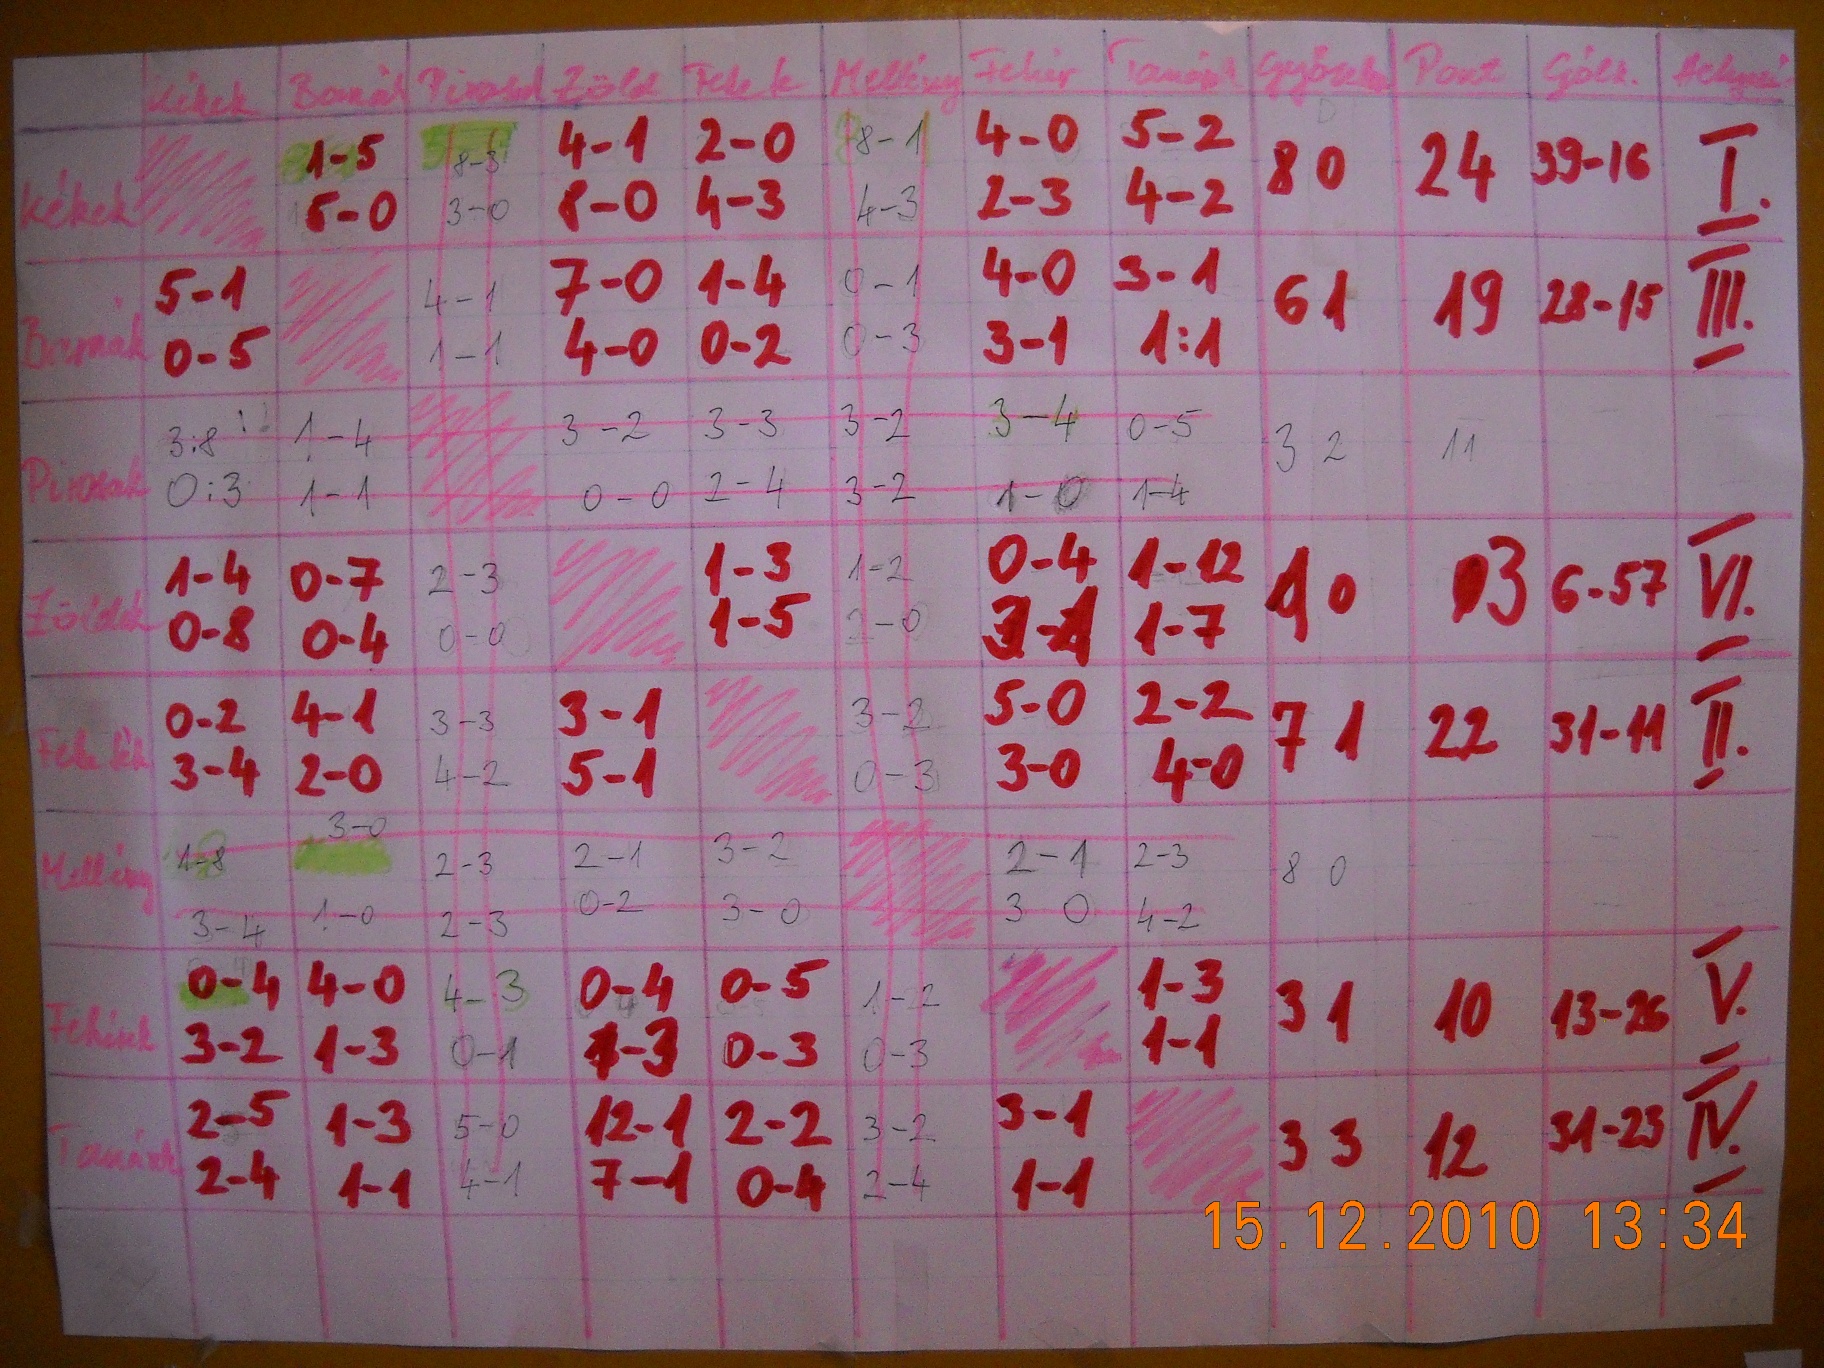 Kékek Barnák Pirosak Zöld Feket Mellény Fehér Tanárok Győzelem Pont Gólk.
1-5 8-3 4-1 2-0 8-1 4-0 5-2
Kékek 5-0 3-0 8-0 4-3 4-3 2-3 4-2 8 0 24 39-16 I.
5-1 4-1 7-0 1-4 0-1 4-0 3-1
Barnák 0-5 1-1 4-0 0-2 0-3 3-1 1:1 6 1 19 28-15 III.
3:8 1-4 3-2 3-3 3-2 3-4 0-5
Pirosak 0:3 1-1 0-0 2-4 3-2 1-0 1-4 3 2 11
1-4 0-7 2-3 1-3 1-2 0-4 1-12
Zöldek 0-8 0-4 0-0 1-5 2-0 1-7 1 0 3 6-57 VI.
0-2 4-1 3-3 3-1 3-2 5-0 2-2
Feketék 3-4 2-0 4-2 5-1 0-3 3-0 4-0 7 1 22 31-11 II.
1-8 3-0 2-3 2-1 3-2 2-1 2-3
Mellény 3-4 1-0 2-3 0-2 3-0 3 0 4-2 8 0
0-4 4-0 4-3 0-4 0-5 1-2 1-3
Fehérek 3-2 1-3 0-1 1-3 0-3 0-3 1-1 3 1 10 13-26 V.
2-5 1-3 5-0 12-1 2-2 3-2 3-1
Tanárok 2-4 1-1 4-1 7-1 0-4 2-4 1-1 3 3 12 31-23 IV.
15.12.2010 13:34